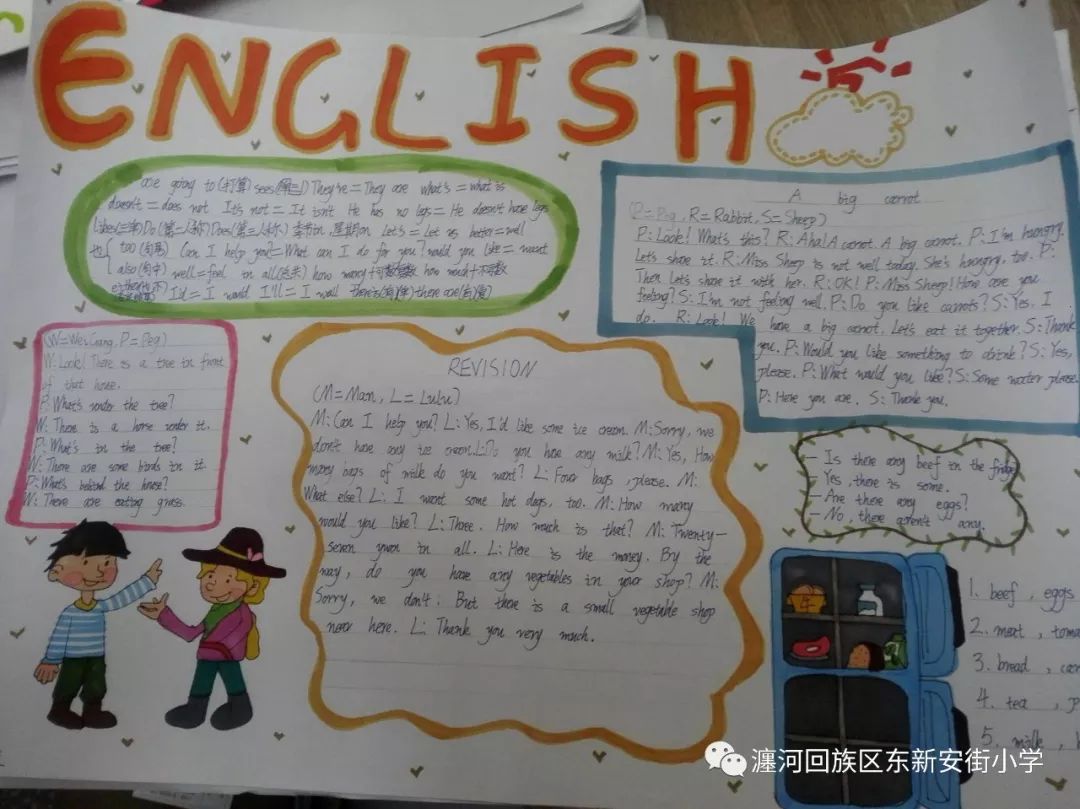 ENGLISH
are going to (打算) sees(第三) They're = They are what's = what is
doesn't = does not It's not = It isn't He has no legs = He doesn't have legs
likes(三单) Do(第二人称) Does(第三人称) 季节in, 星期on Let's = Let us better = well
也 too (句尾) Can I help you? = What can I do for you? would you like = want
also(句中) well = feel in all(总共) how many + 可数 how much + 不可数
either I'd = I would I'll = I will There is there are
A big carrot
(P = Peg, R = Rabbit, S = Sheep)
P: Look! What's this? R: Aha! A carrot. A big carrot. P: I'm hungry.
Let's share it. R: Miss Sheep is not well today. She's hungry, too. P:
Then Let's share it with her. R: OK! P: Miss Sheep! How are you
feeling? S: I'm not feeling well. P: Do you like carrots? S: Yes, I
do. R: Look! We have a big carrot. Let's eat it together. S: Thank
you. P: Would you like something to drink? S: Yes,
please. P: What would you like? S: Some water please.
P: Here you are. S: Thank you.
(W = Wei Gang, P = Peg)
W: Look! There is a tree in front
of that house.
P: What's under the tree?
W: There is a horse under it.
P: What's in the tree?
W: There are some birds in it.
P: What's behind the house?
W: There are eating grass.
REVISION
(M = Man, L = Lulu)
M: Can I help you? L: Yes, I'd like some ice cream. M: Sorry, we
don't have any ice cream. L: Do you have any milk? M: Yes, How
many bags of milk do you want? L: Four bags, please. M:
What else? L: I want some hot dogs, too. M: How many
would you like? L: Three. How much is that? M: Twenty-
seven yuan in all. L: Here is the money. By the
way, do you have any vegetables in your shop? M:
Sorry, we don't. But there is a small vegetable shop
near here. L: Thank you very much.
- Is there any beef in the fridge
- Yes, there is some.
- Are there any eggs?
- No, there aren't any.
1. beef, eggs
2. meat, toma
3. bread,
4. tea,
5. milk,
瀍河回族区东新安街小学